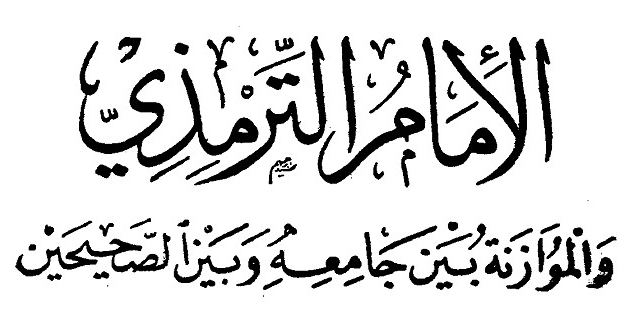 الإمام الترمذي
والموازنة بين جامعه وبين الصحيحين